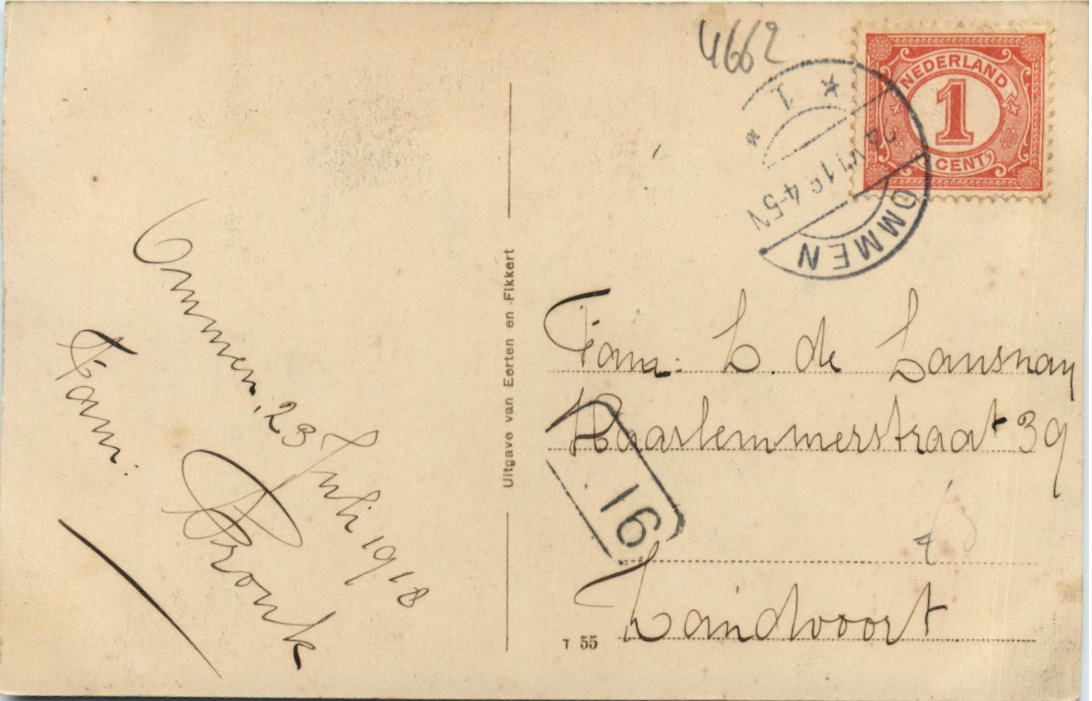 4662
NEDERLAND
1
CENT
OMMEN
4-5N
1
Ommen, 23 Juli 1918
Fam: Pronk
Uitgave van Eerten en Fikkert
Fam: L. de Lansnay
Haarlemmerstraat 39
16
Zandvoort
T 55